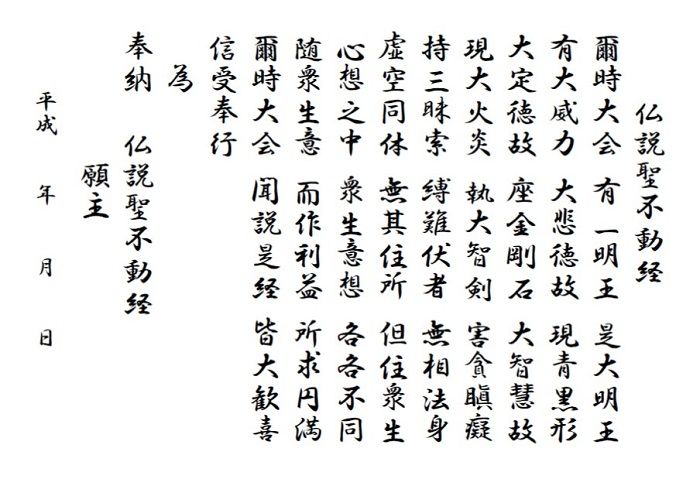 仏説聖不動経
爾時大会 有一明王 是大明王
有大威力 大悲徳故 現青黒形
大定徳故 座金剛石 大智慧故
現大火炎 執大智剣 害貪瞋癡
持三昧索 縛難伏者 無相法身
虚空同体 無其住所 但住衆生
心想之中 衆生意想 各各不同
随衆生意 而作利益 所求円満
爾時大会 聞説是経 皆大歓喜
信受奉行
為
奉納 仏説聖不動経
願主
平成 年 月 日